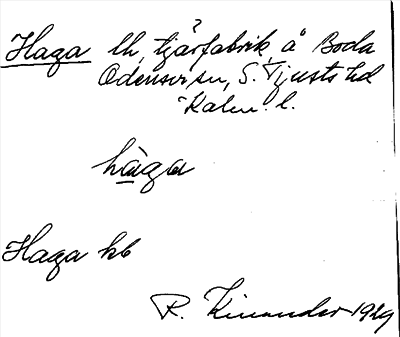 Haga lh, tjärfabrik, å Boda
Odensvi sn, S. Tjusts hd
Kalm. l.
hàga
Haga kb
R. Kinander 1929